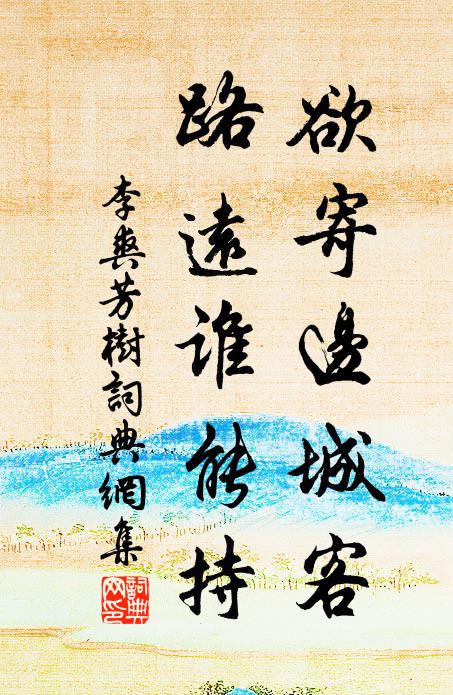 欲寄邊城客
路遠誰能持
李爽芳樹詞典網集
詞典